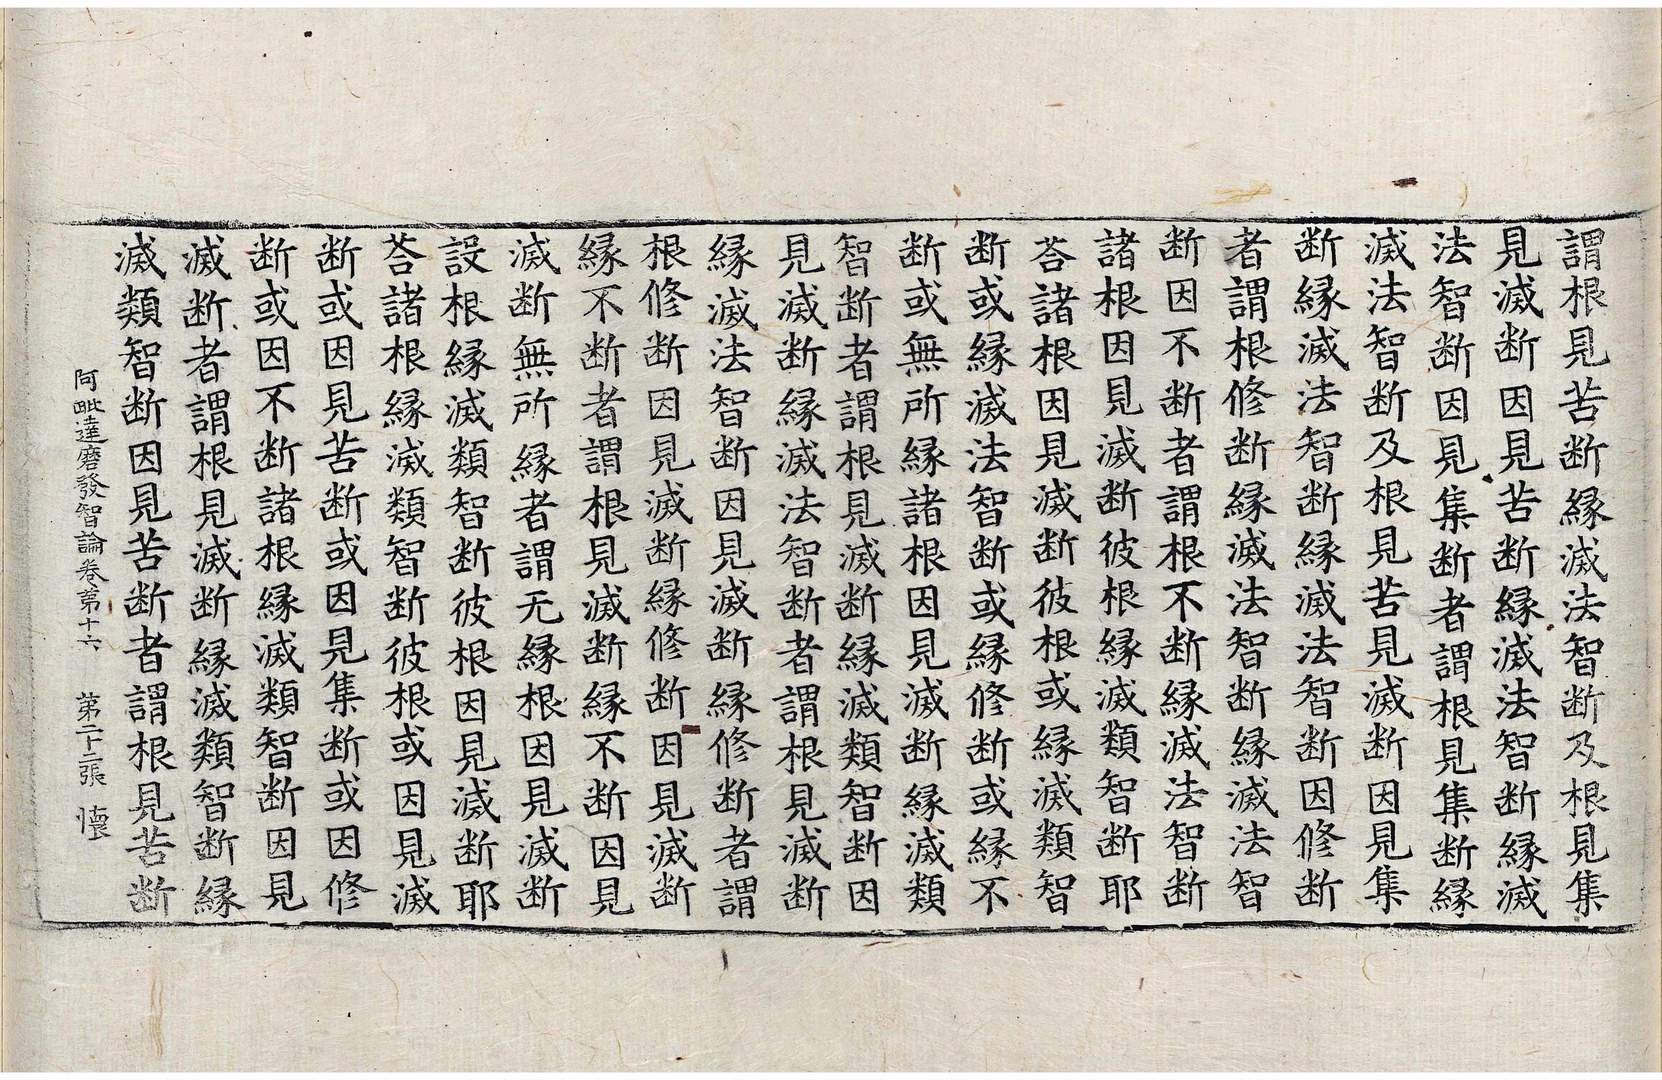 謂根見苦断縁滅法智断及根見集
見滅断因見苦断縁滅法智断縁滅
法智断因見集断者謂根見集断縁
滅法智断及根見苦見滅断因見集
断縁滅法智断縁滅法智断因修断
者謂根修断縁滅法智断縁滅法智
断因不断者謂根不断縁滅法智断
諸根因見滅断彼根縁滅類智断耶
荅諸根因見滅断彼根或縁滅類智
断或縁滅法智断或縁修断或縁不
断或無所縁諸根因見滅断縁滅類
智断者謂根見滅断縁滅類智断因
見滅断縁滅法智断者謂根見滅断
縁滅法智断因見滅断縁修断者謂
根修断因見滅断縁修断因見滅断
縁不断者謂根見滅断縁不断因見
滅断無所縁者謂无縁根因見滅断
設根縁滅類智断彼根因見滅断耶
荅諸根縁滅類智断彼根或因見滅
断或因見苦断或因見集断或因修
断或因不断諸根縁滅類智断因見
滅断者謂根見滅断縁滅類智断縁
滅類智断因見苦断者謂根見苦断
阿毗達磨發智論卷第十六 第二十二張 懷